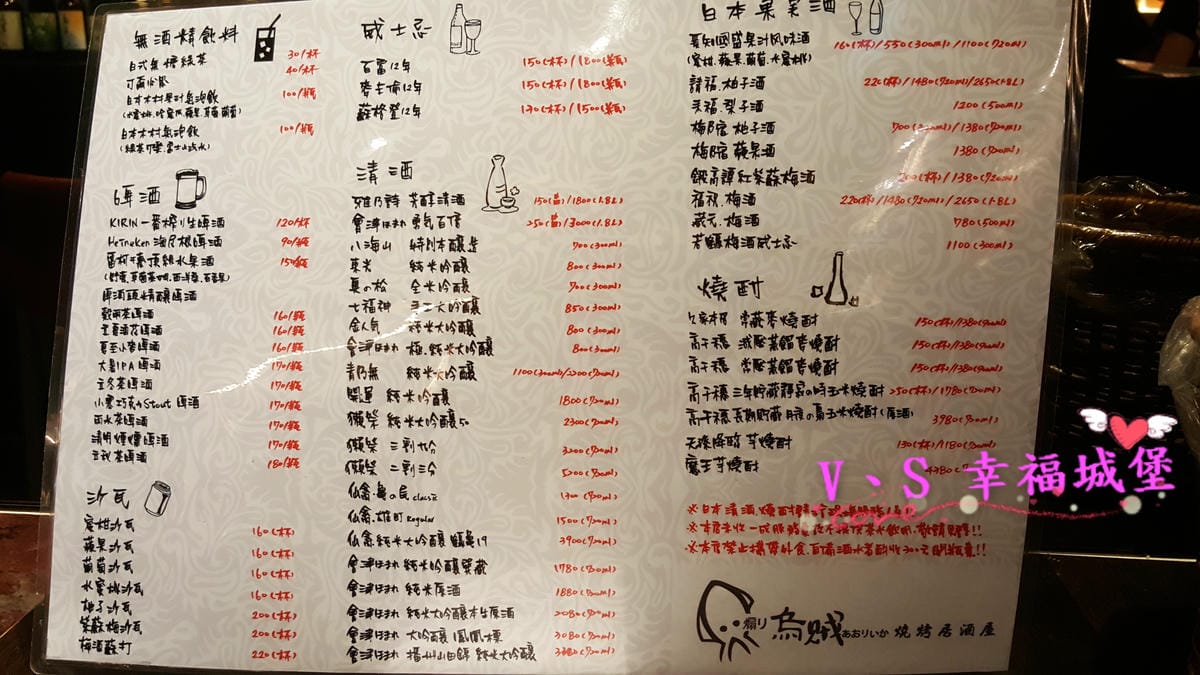 無酒精飲料
日式無糖綠茶 30/杯
可爾必思 40/杯
日本木村果汁氣泡飲 100/瓶
日本木村氣泡飲 100/瓶
啤酒
KIRIN一番搾り生啤酒 120/杯
HeineKen 海尼根啤酒 90/瓶
150/瓶
啤酒頭精釀啤酒
穀雨茶啤酒 160/瓶
立夏酒花啤酒 160/瓶
夏至小麥啤酒 160/瓶
大暑IPA啤酒 170/瓶
立冬茶啤酒 170/瓶
小寒巧克力Stout啤酒 170/瓶
雨水茶啤酒 170/瓶
清明煙燻啤酒 170/瓶
立秋茶啤酒 180/瓶
沙瓦
蜜柑沙瓦 160(杯)
蘋果沙瓦 160(杯)
葡萄沙瓦 160(杯)
水蜜桃沙瓦 160(杯)
柚子沙瓦 200(杯)
紫蘇梅沙瓦 200(杯)
梅酒蘇打 220(杯)
威士忌
百富12年 150(杯)/1800(瓶)
麥卡倫12年 150(杯)/1800(瓶)
蘇格登12年 130(杯)/1500(瓶)
清酒
芳醇清酒 150(壺)/1800(1.8L)
會津ほまれ 勇氣百倍 250(壺)/3000(1.8L)
八海山 特別本釀造 700(300ml)
東光 純米吟釀 800(300ml)
真の松 全米吟釀 700(300ml)
七福神 手工大吟釀 850(300ml)
金人気 純米大吟釀 800(300ml)
會津ほまれ 極.純米大吟釀 800(300ml)
純米大吟釀 1100(300ml)/2200(720ml)
開運 純米吟釀 1800(720ml)
獺祭 純米大吟釀50 2300(720ml)
獺祭 三割九分 3200(720ml)
獺祭 二割三分 5200(720ml)
仙禽.亀の尾 classic 1300(720ml)
仙禽.雄町 Regular 1500(720ml)
仙禽.純米大吟釀 鶴亀19 3900(720ml)
會津ほまれ 純米吟釀 1780(720ml)
會津ほまれ 純米原酒 1880(720ml)
會津ほまれ 純米大吟釀本生原酒 2080(720ml)
會津ほまれ 大吟釀 鳳凰標 3080(720ml)
會津ほまれ 播州山田錦 純米大吟釀 3380(720ml)
日本果実酒
夏知國盛果汁風味酒 160(杯)/550(300ml)/1100(720ml)
(蜜柑.蘋果.葡萄.水蜜桃)
請福.柚子酒 220(杯)/1480(720ml)/2650(1.8L)
美福.梨子酒 1200(500ml)
梅乃宿 柚子酒 700(300ml)/1380(720ml)
梅乃宿 蘋果酒 1380(720ml)
紅紫蘇梅酒 200(杯)/1380(720ml)
福祝.梅酒 220(杯)/1480(720ml)/2650(1.8L)
藏元.梅酒 780(500ml)
若鶴梅酒威士忌 1100(300ml)
燒酎
久家本店 常藏麥燒酎 150(杯)/1380(900ml)
高千穗 減壓蒸餾麥燒酎 150(杯)/1380(900ml)
高千穗 常壓蒸餾麥燒酎 150(杯)/1380(900ml)
高千穗 三年貯藏靜寂の時玉米燒酎 250(杯)/1780(720ml)
高千穗 長期貯藏 玉米燒酎(原酒) 3980(720ml)
天孫降臨 芋燒酎 130(杯)/1180(720ml)
魔王芋燒酎 4380
V、S 幸福城堡
love
煽り 烏賊 あおりいか 燒烤居酒屋